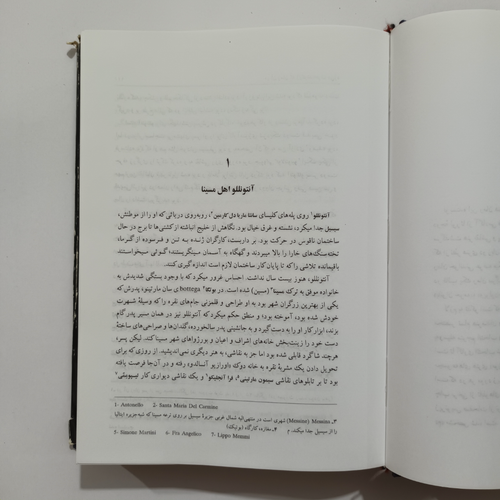 ۱
آنتونللو اهل مسینا
آنتونللو۱ روی پله‌های کلیسای سانتا ماریا دل کارمین۲، روبه‌روی دریائی که او را از موطنش،
سیسیل جدا میکرد، نشسته و غرق خیال بود. نگاهش از خلیج انباشته از کشتی‌ها تا برج در حال
ساختمان ناقوس در حرکت بود. بر داربست، کارگران ژنده به تن و فرسوده از گرما،
تخته‌سنگ‌های خارا را بالا میبردند و گهگاه به آسمان مینگریستند؛ گوئی میخواستند
باقیمانده تلاشی را که تا پایان کار ساختمان لازم است اندازه‌گیری کنند.
آنتونللو، هنوز بیست سال نداشت. احساس غرور میکرد که با وجود بستگی شدیدش به
خانواده موفق به ترک مسینا۳ (مسین) شده است. در بوتگا bottega۴ی سان مارتینو، پدرش که
یکی از بهترین زرگران شهر بود به او طراحی و قلمزنی جام‌های نقره را که وسیلهٔ شهرت
خودش شده بود، آموخته بود؛ و منطق حکم میکرد که آنتونللو نیز در همان مسیر پدر گام
بزند، ابزار کار او را به دست گیرد و به جانشینی پدر سالخورده، گلدان‌ها و صراحی‌های ساختهٔ
دست خود را زینت‌بخش خانه‌های اشراف و اعیان و بورژواهای شهر کند. لیکن پسر،
هرچند شاگرد قابلی شده بود اما جز به نقاشی، به هنر دیگری نمی‌اندیشید. از روزی که برای
تحویل دادن یک مشربهٔ نقره به خانه دوک داورازیو آنسالدو رفته و در آن‌جا فرصت یافته
بود تا بر تابلوهای نقاشی سیمون مارتینی۵، فرا آنجلیکو۶ و یک نقاشی دیواری کار لیپومِمّی۷
1- Antonello 2- Santa Maria Del Carmine
۳- Messine (Messina) شهری است در منتهی‌الیه شمال غربی جزیرهٔ سیسیل بر روی دماغه مسینا که شبه‌جزیره ایتالیا
را از سیسیل جدا میکند. م ۴- مغازه، کارگاه (بوتیک)
5- Simone Martini 6- Fra Angelico 7- Lippo Memmi